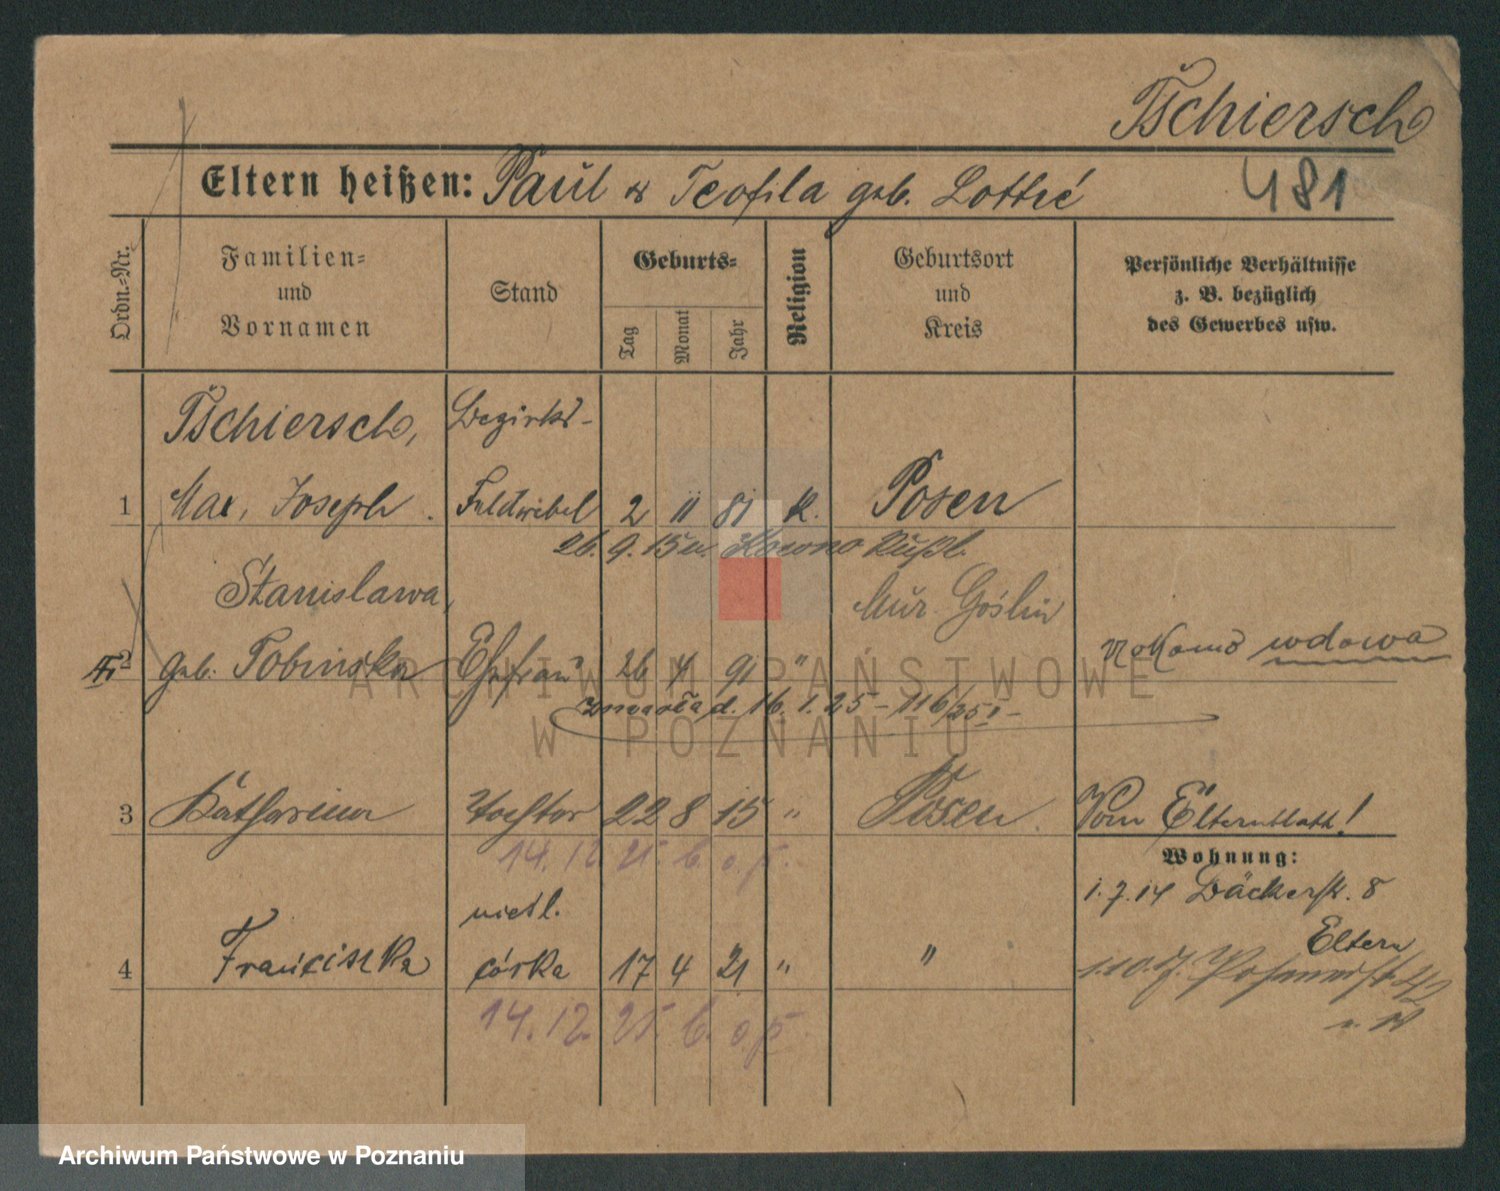 Tschiersch
Eltern heißen: Paul & Teofila geb. Lottré
481
Ordn.-Nr.
Familien- und Vornamen
Stand
Geburts-
Tag
Monat
Jahr
Religion
Geburtsort und Kreis
Persönliche Verhältnisse z. B. bezüglich des Gewerbes usw.
Tschiersch, Bezirks-
1 Max, Joseph. Feldwebel 2 11 81 K. Posen
26. 9. 15 Kowno Rußl.
Stanislawa, Mur. Goślin
2 geb. Tobinska Ehefrau 26 4 91 " wdowa
zmarła d. 16. 1. 25 - 116/25
3 Katharina Tochter 22 8 15 " Posen. Vom Elternblatt!
14. 12. 25. b. o. p.
Wohnung:
1. 7. 14 Bäckerstr. 8
nieśl.
Eltern
4 Franciszka córka 17 4 21 " "
1. 10. 17.
14. 12. 25. b. o. p.
ARCHIWUM PAŃSTWOWE
W POZNANIU
Archiwum Państwowe w Poznaniu